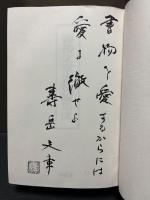 書物を愛するからには
愛に徹せよ
壽岳文章